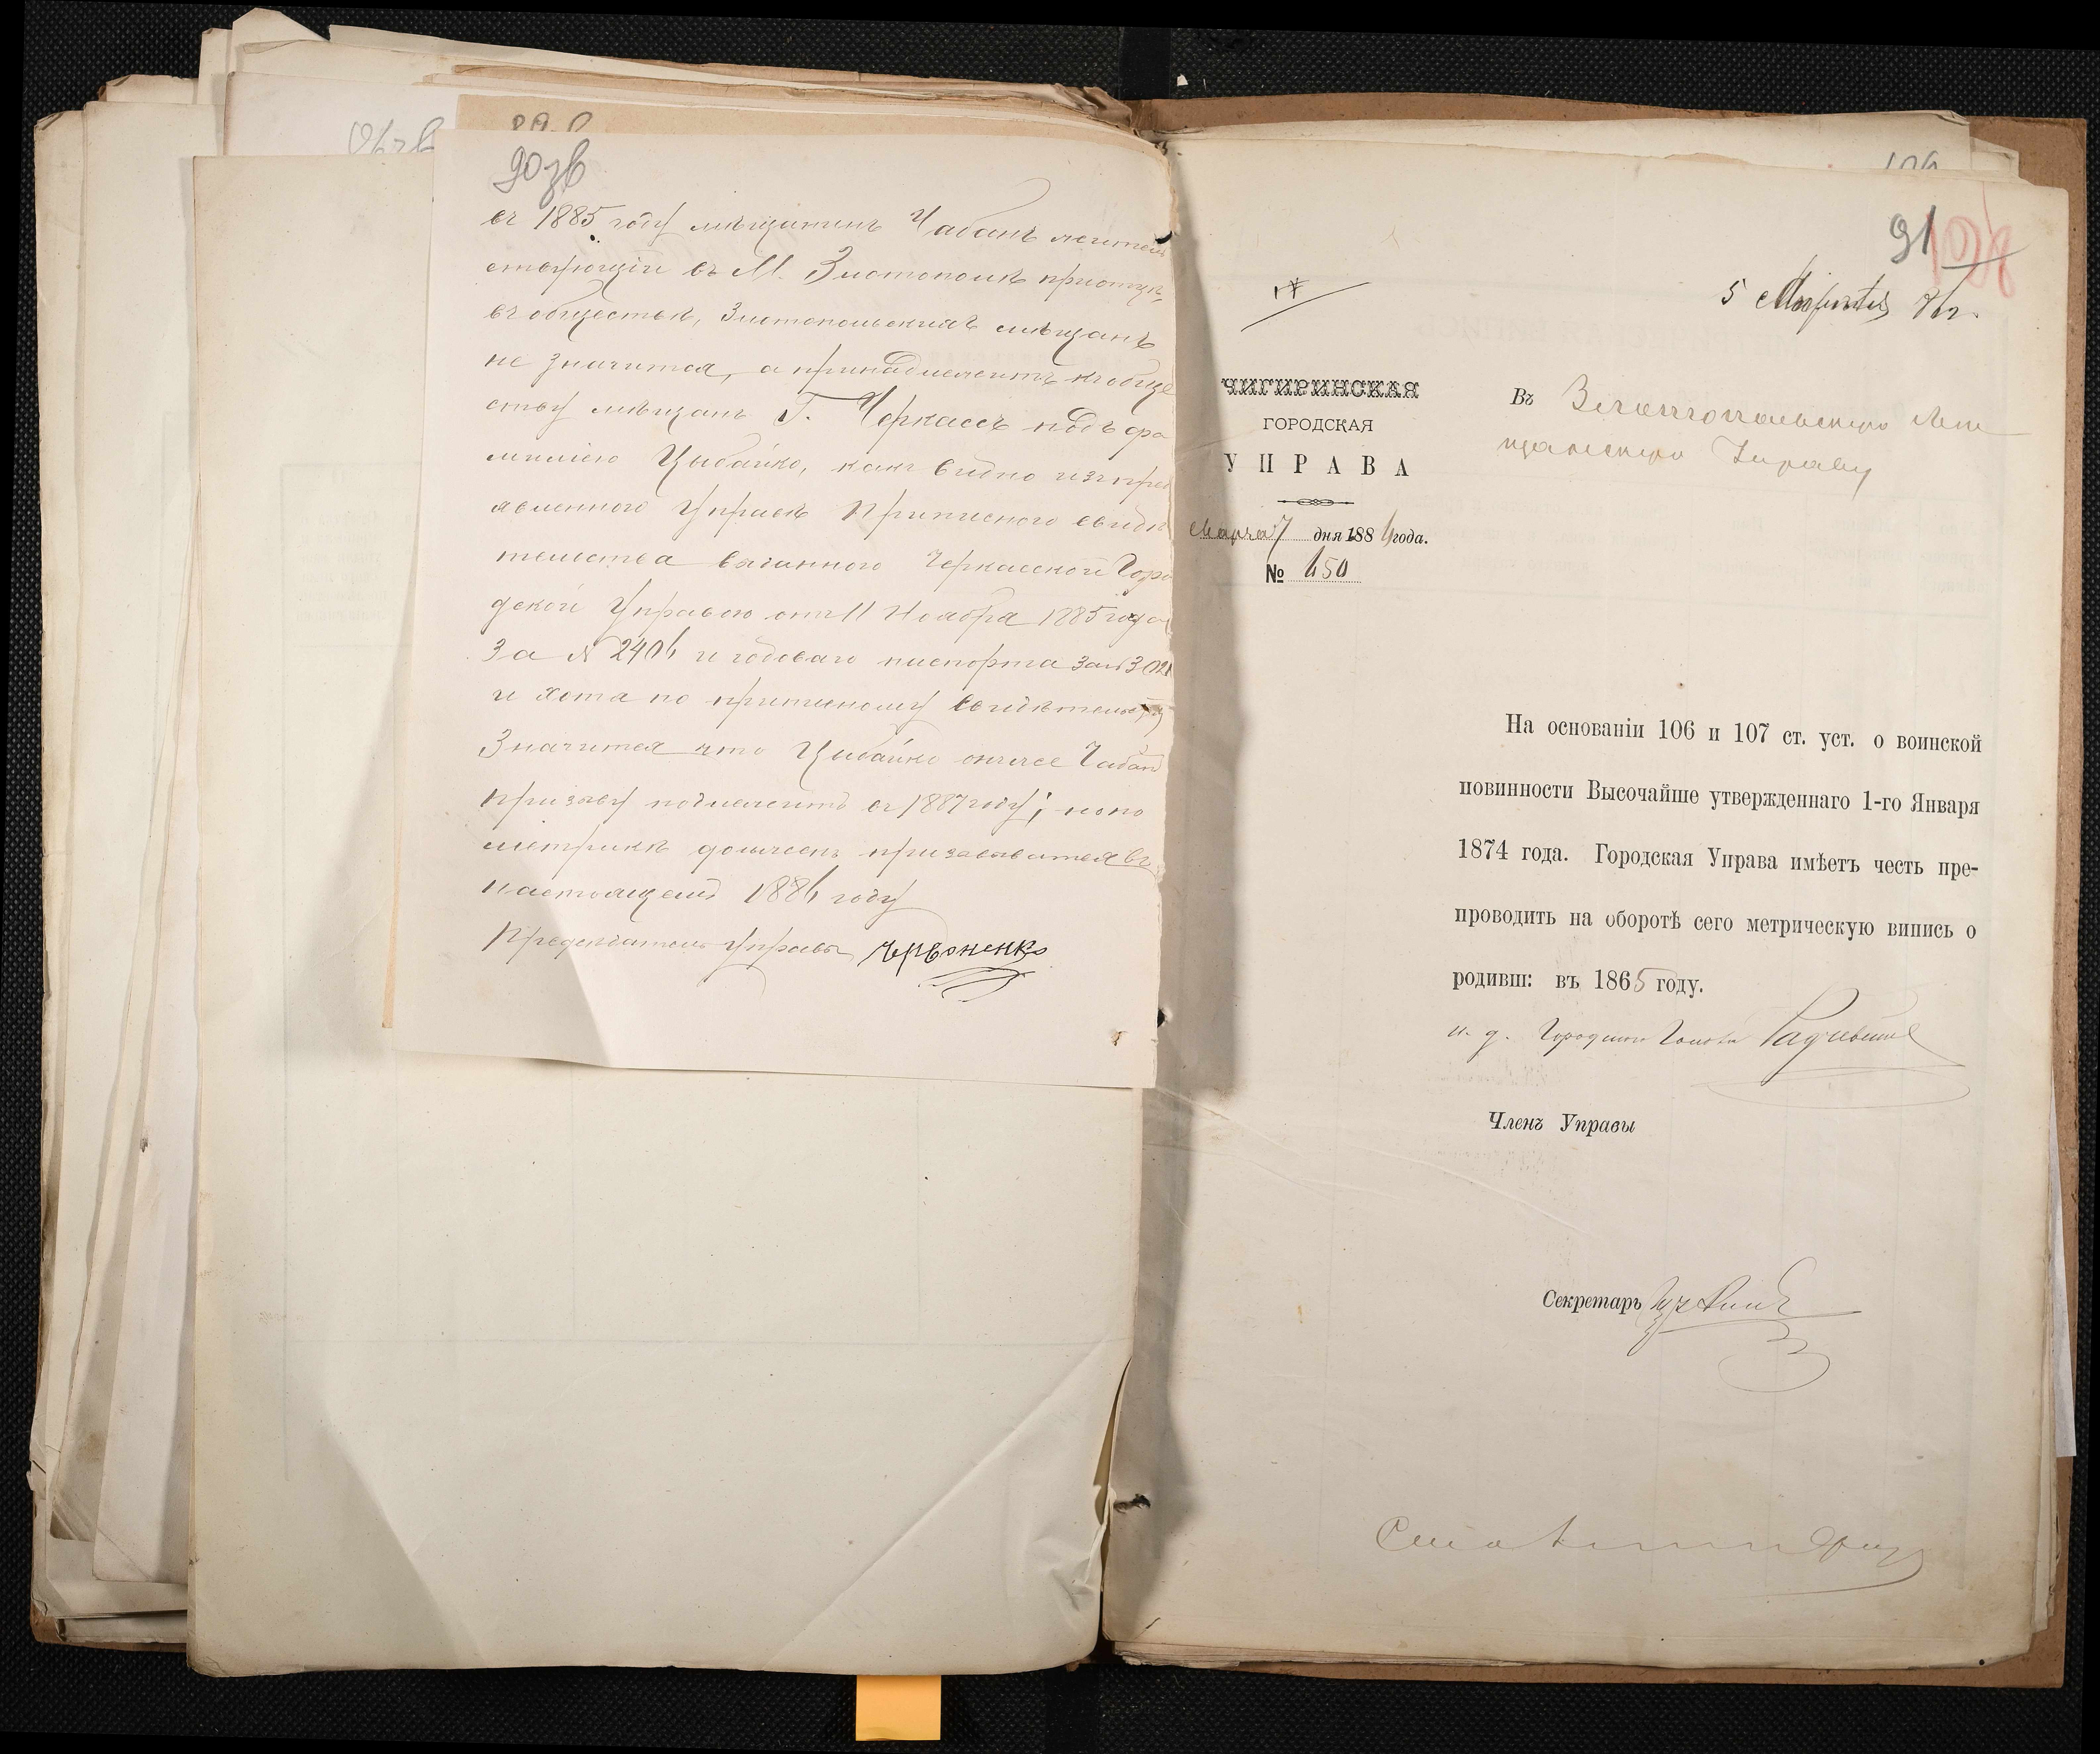 90 зв
въ 1885 году мѣщанинъ Чабанъ жител
ствующій въ М. Златополѣ
въ обществѣ, Златопольскихъ мѣщанъ
не значится, а принадлежитъ къ обще
ству мѣщанъ Г. Черкассъ подъ фа
миліею Цыбайко, какъ видно изъ пред
явленного Управѣ Приписного свидѣ
тельства выданного Черкасской Горо
дской Управою отъ 11 Ноября 1885 года
За № 2406 и годоваго паспорта за №
и хотя по приписному свидѣтельству
Значится что Цыбайко онъ же Чабан
призыву подлежитъ въ 1887 году; но по
метрикѣ долженъ призываться въ
настоящемъ 1886 году
Предсѣдатель Управы Червоненко
91
108
5 Марта 86 г.
ЧИГИРИНСКАЯ
ГОРОДСКАЯ
УПРАВА
Марта 7 дня 1886 года.
№ 650
Въ Златопольскую Мѣ
щанскую Управу
На основаніи 106 и 107 ст. уст. о воинской
повинности Высочайше утвержденнаго 1-го Января
1874 года. Городская Управа имѣетъ честь пре-
проводить на оборотѣ сего метрическую випись о
родивш: въ 1865 году.
и. д. Городского Головы
Членъ Управы
Секретарь